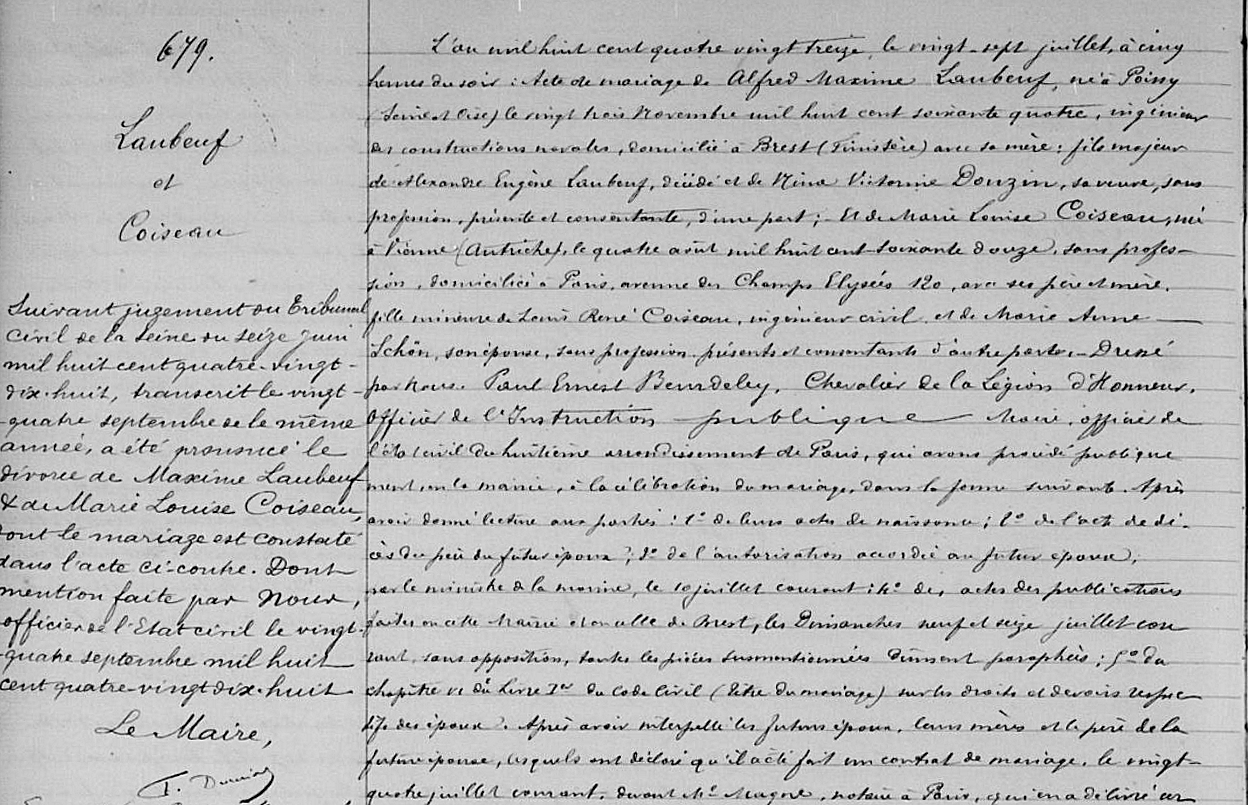 679.
Laubeuf
et
Coiseau
Suivant jugement du Tribunal
Civil de la Seine du seize juin
mil huit cent quatre-vingt-
dix-huit, transcrit le vingt-
quatre septembre de le même
année, a été prononcé le
divorce de Maxime Laubeuf
& de Marie Louise Coiseau,
dont le mariage est constaté
dans l'acte ci-contre. Dont
mention faite par Nous,
officier de l'Etat civil le vingt-
quatre septembre mil huit
cent quatre-vingt dix-huit
Le Maire,
L'an mil huit cent quatre vingt treize, le vingt-sept juillet, à cinq
heures du soir : Acte de mariage de Alfred Maxime Laubeuf, né à Poissy
(Seine et Oise) le vingt trois Novembre mil huit cent soixante quatre, ingénieur
des constructions navales, domicilié à Brest (Finistère) avec sa mère ; fils majeur
de Alexandre Eugène Laubeuf, décédé et de Nina Victorine Douzin, sa veuve, sans
profession, présente et consentante, d'une part ; - Et de Marie Louise Coiseau, née
à Vienne (Autriche), le quatre août mil huit cent soixante douze, sans profes-
sion, domiciliée à Paris, avenue des Champs Elysées 120, avec ses père et mère,
fille mineure de Louis René Coiseau, ingénieur civil, et de Marie Anne
Schön, son épouse, sans profession présents et consentants d'autre part. - Dressé
par nous, Paul Ernest Beurdeley, Chevalier de la Légion d'Honneur,
Officier de l'Instruction publique Maire, officier de
l'état civil du huitième arrondissement de Paris, qui avons procédé publique
ment, en la mairie, à la célébration du mariage, dans la forme suivante. Après
avoir donné lecture aux parties : 1º de leurs actes de naissance ; 2º de l'acte de dé-
cès du père du futur époux ; 3º de l'autorisation accordée au futur époux,
par le ministre de la marine, le 10 juillet courant ; 4º des actes des publications
faites en cette Mairie et en celle de Brest, les Dimanches neuf et seize juillet cou
rant, sans opposition, toutes les pièces susmentionnées dûment paraphées ; 5º du
chapitre VI du Livre 1er du Code Civil (titre du mariage) sur les droits et devoirs respec
tifs des époux. Après avoir interpellé les futurs époux, leurs mères et le père de la
future épouse, lesquels ont déclaré qu'il a été fait un contrat de mariage, le vingt-
quatre juillet courant, devant Me Magne, notaire à Paris, qui en a délivré un